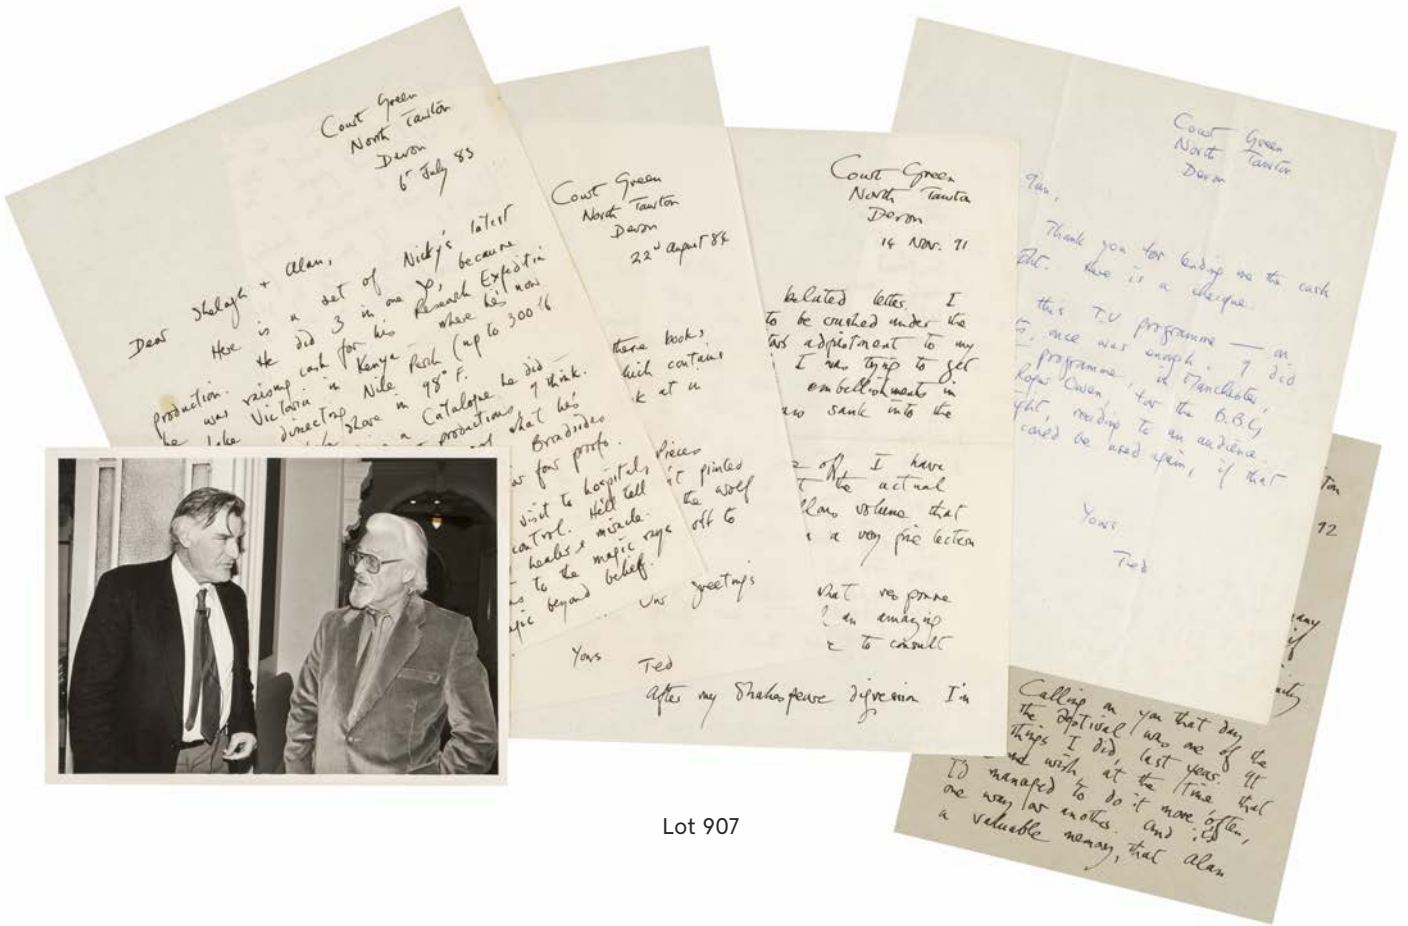 Court Green
North Tawton
Devon
6th July 83
Dear Shelagh + Alan,
Here is a set of Nicky's latest
production. He did 3 in one go, because
he was raising cash for his Research Expedition
Lake Victoria in Kenya — where he's now
directing Nile Perch (up to 300 lb
shore in 98° F.
a Catalogue he did —
productions I think.
what he's
Broadsides
four proofs.
visit to hospital,
control. He'll tell
healer & miracle.
to the magic rays
beyond belief.
Court Green
North Tawton
Devon
22nd August 84
these books,
which contains
k at a
Pieces
't printed
the wolf
off to
greetings
Yours
Ted
Court Green
North Tawton
Devon
14 Nov. 91
belated letter. I
to be crushed under the
adjustment to my
I was trying to get
embellishments in
sank into the
off, I have
the actual
volume that
a very fine lection
what response
an amazing
to consult
After my Shakespeare digression I'm
Court Green
North Tawton
Devon
Thank you for lending me the cash
Here is a cheque.
this T.V programme — on
once was enough. I did
programme, in Manchester,
Roger Owen, for the B.B.C,
reading to an audience.
could be used again, if that
Yours
Ted
ton
92
many
if
Calling on you that day
the festival was one of the
things I did, last year. It
me wish at the time that
I'd managed to do it more often,
one way or another. And it's
a valuable memory, that Alan
Lot 907